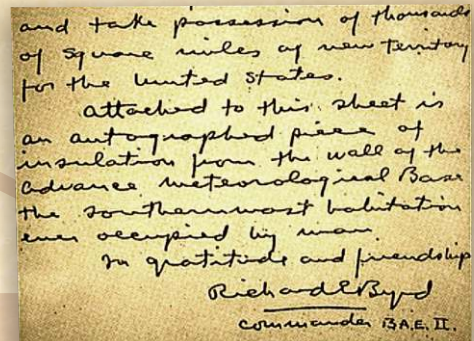 and take possession of thousands
of square miles of new territory
for the United States.
attached to this sheet is
an autographed piece of
insulation from the wall of the
advance meteorological Base
the southernmost habitation
ever occupied by man
In gratitude and friendship
Richard E Byrd
Commander B.A.E. II.